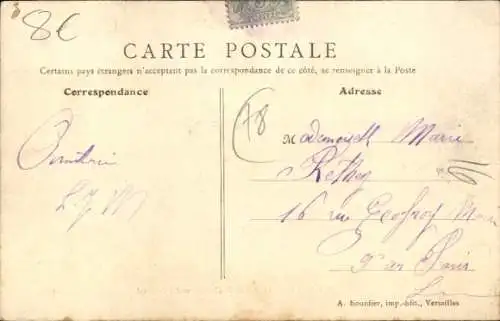 8€
CARTE POSTALE
Certains pays étrangers n'acceptant pas la correspondance de ce côté, se renseigner à la Poste
Correspondance
Adresse
78
Mademoiselle Marie
16 rue Geofroy
Paris
A. Bourdier, imp.-édit., Versailles